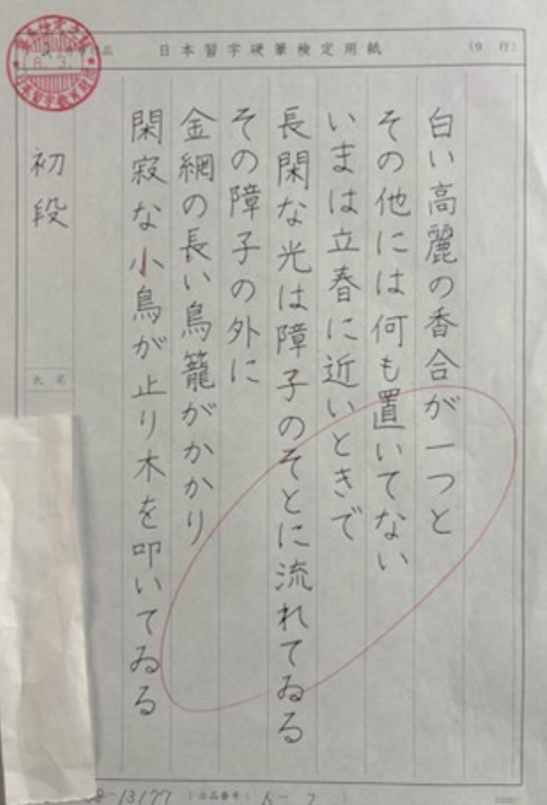 日本習字硬筆検定用紙
(9 行)
品
白い高麗の香合が一つと
その他には何も置いてない
いまは立春に近いときで
長閑な光は障子のそとに流れてゐる
その障子の外に
金網の長い鳥籠がかかり
閑寂な小鳥が止り木を叩いてゐる
初段
氏名
8-13177
出品番号( 6-7 )